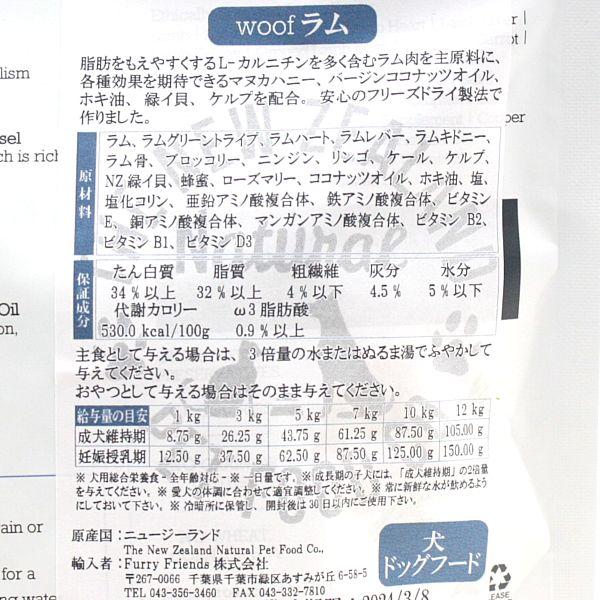 woof ラム
脂肪をもえやすくするL-カルニチンを多く含むラム肉を主原料に、
各種効果を期待できるマヌカハニー、バージンココナッツオイル、
ホキ油、緑イ貝、ケルプを配合。安心のフリーズドライ製法で
作りました。
原材料
ラム、ラムグリーントライプ、ラムハート、ラムレバー、ラムキドニー、
ラム骨、ブロッコリー、ニンジン、リンゴ、ケール、ケルプ、
NZ緑イ貝、蜂蜜、ローズマリー、ココナッツオイル、ホキ油、塩、
塩化コリン、亜鉛アミノ酸複合体、鉄アミノ酸複合体、ビタミン
E、銅アミノ酸複合体、マンガンアミノ酸複合体、ビタミン B2、
ビタミン B1、ビタミン D3
NEW ZEALAND
Natural
保証成分
たん白質 脂質 粗繊維 灰分 水分
34%以上 32%以上 4%以下 4.5% 5%以下
代謝カロリー ω3脂肪酸
530.0 kcal/100g 0.9%以上
主食として与える場合は、3倍量の水またはぬるま湯でふやかして
与えてください。
おやつとして与える場合はそのまま与えてください。
給与量の目安 1 kg 3 kg 5 kg 7 kg 10 kg 12 kg
成犬維持期 8.75 g 26.25 g 43.75 g 61.25 g 87.50 g 105.00 g
妊娠授乳期 12.50 g 37.50 g 62.50 g 87.50 g 125.00 g 150.00 g
※犬用総合栄養食-全年齢対応- ※一日量です。※成長期の子犬には、「成犬維持期」の2倍量
を与えてください。※愛犬の体調に合わせて適宜調整してください。※常に新鮮な水が飲めるよう
にしておいて下さい。※冷暗所に保管し、開封後は30日以内にご使用下さい。
原産国：ニュージーランド
The New Zealand Natural Pet Food Co.,
輸入者：Furry Friends 株式会社
〒267-0066 千葉県千葉市緑区あすみが丘 6-58-5
TEL 043-356-3460 FAX 043-332-7810
2024/3/8
犬
ドッグフード
lism
sel
ch is rich
Oil
on,
ain or
for a
ing wate